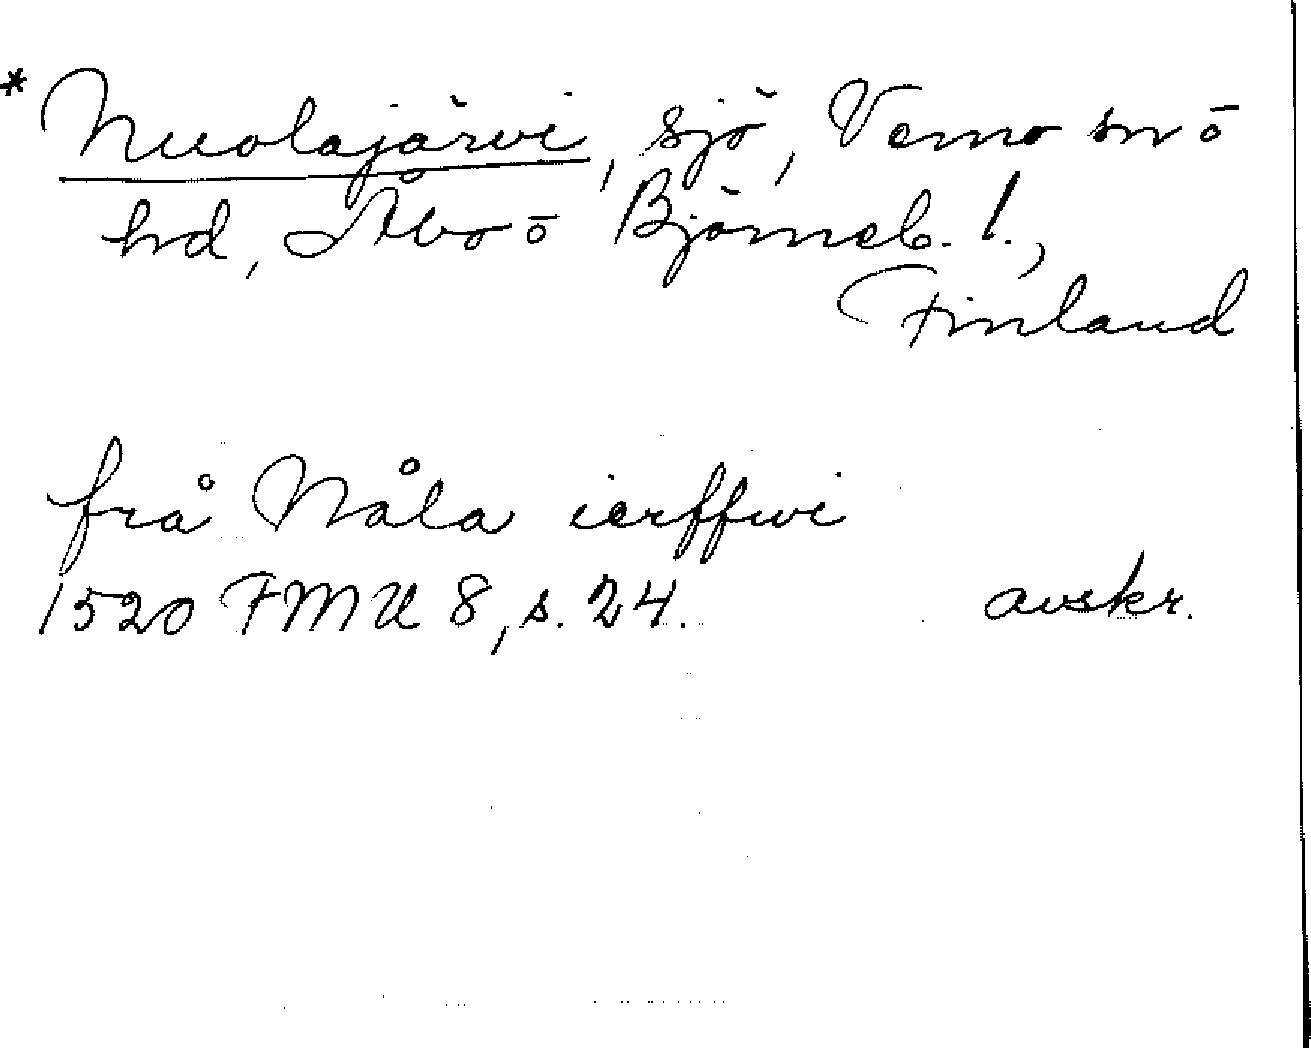 * Nuolajärvi, sjö, Vemo sn o
hd, Åbo o Björneb. l.,
Finland
frå Nåla ierffwi
1520 FMU 8, s. 24. avskr.